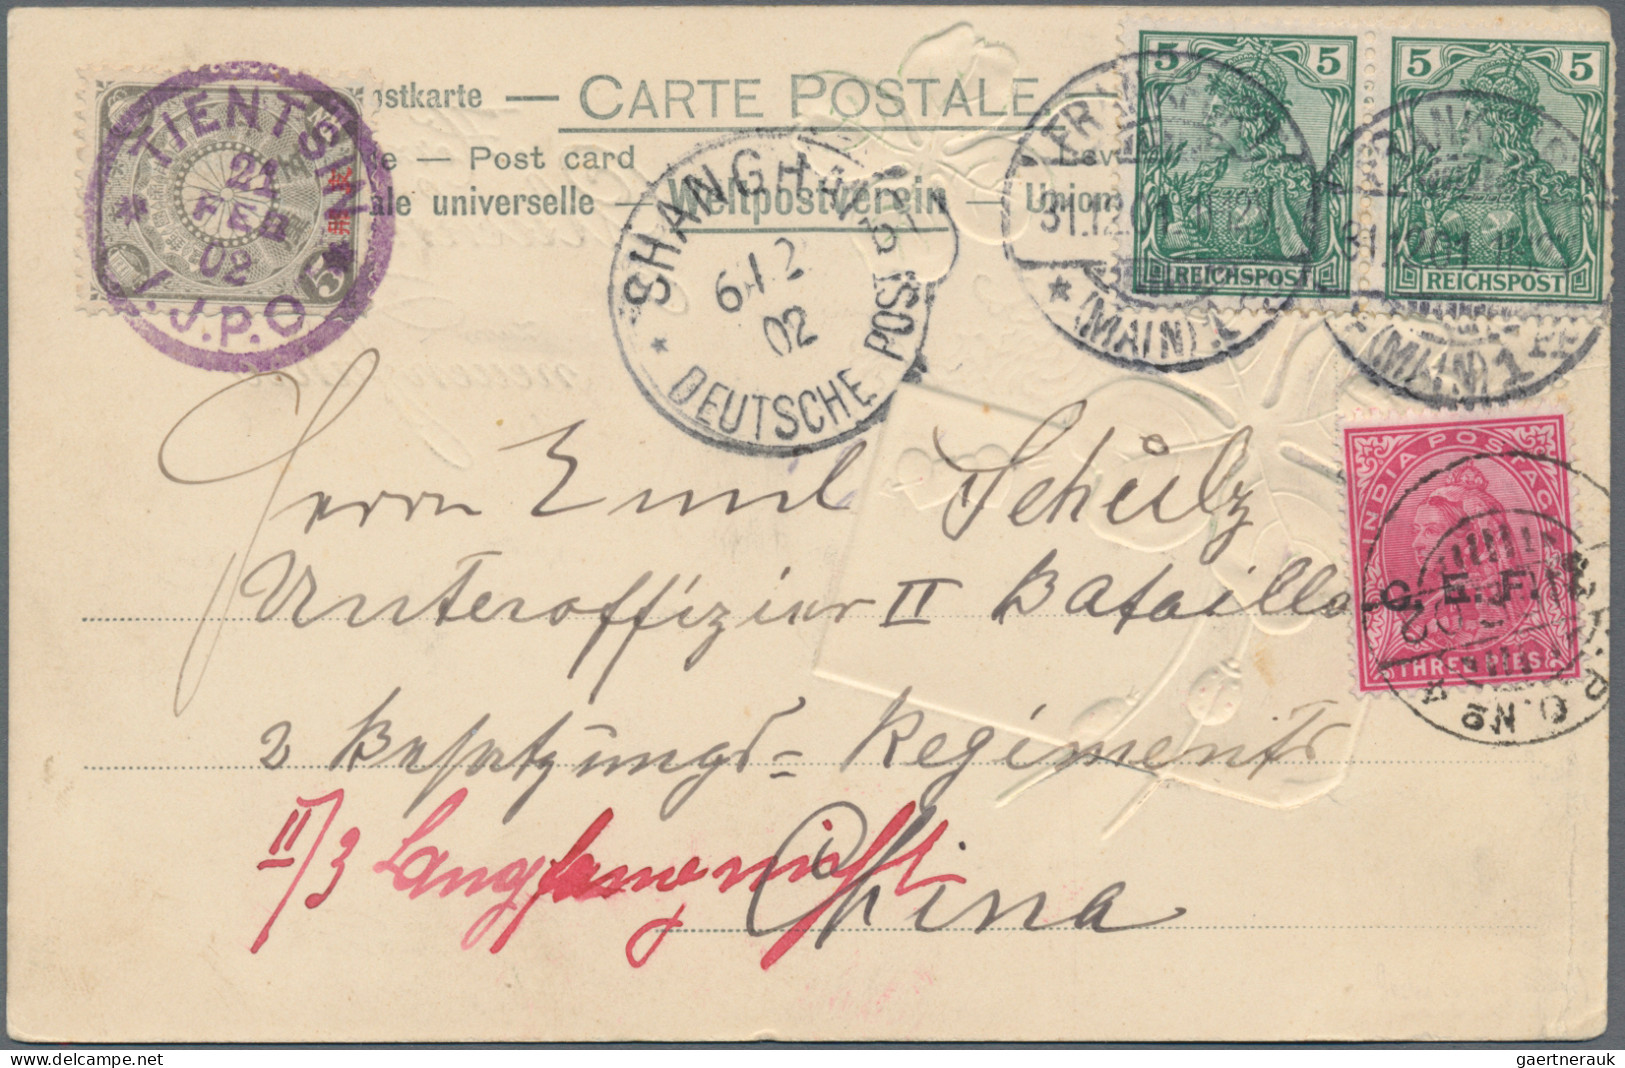 ostkarte — CARTE POSTALE
e — Post card
ale universelle — Weltpostverein — Union
TIENTSIN
22
FEB
02
I.J.P.O
5
SHANGHAI
6/12
02
DEUTSCHE POST
5 5
REICHSPOST
5 5
REICHSPOST
31.12.01
(MAIN)
(MAIN) 1
INDIA POSTAGE
C. E. F.
THREE PIES
P.O. No
Herrn Emil Schülz
Unteroffizier II Bataillo
2 Besatzungs- Regiments
II/3 Langfang
China
gaertnerauk